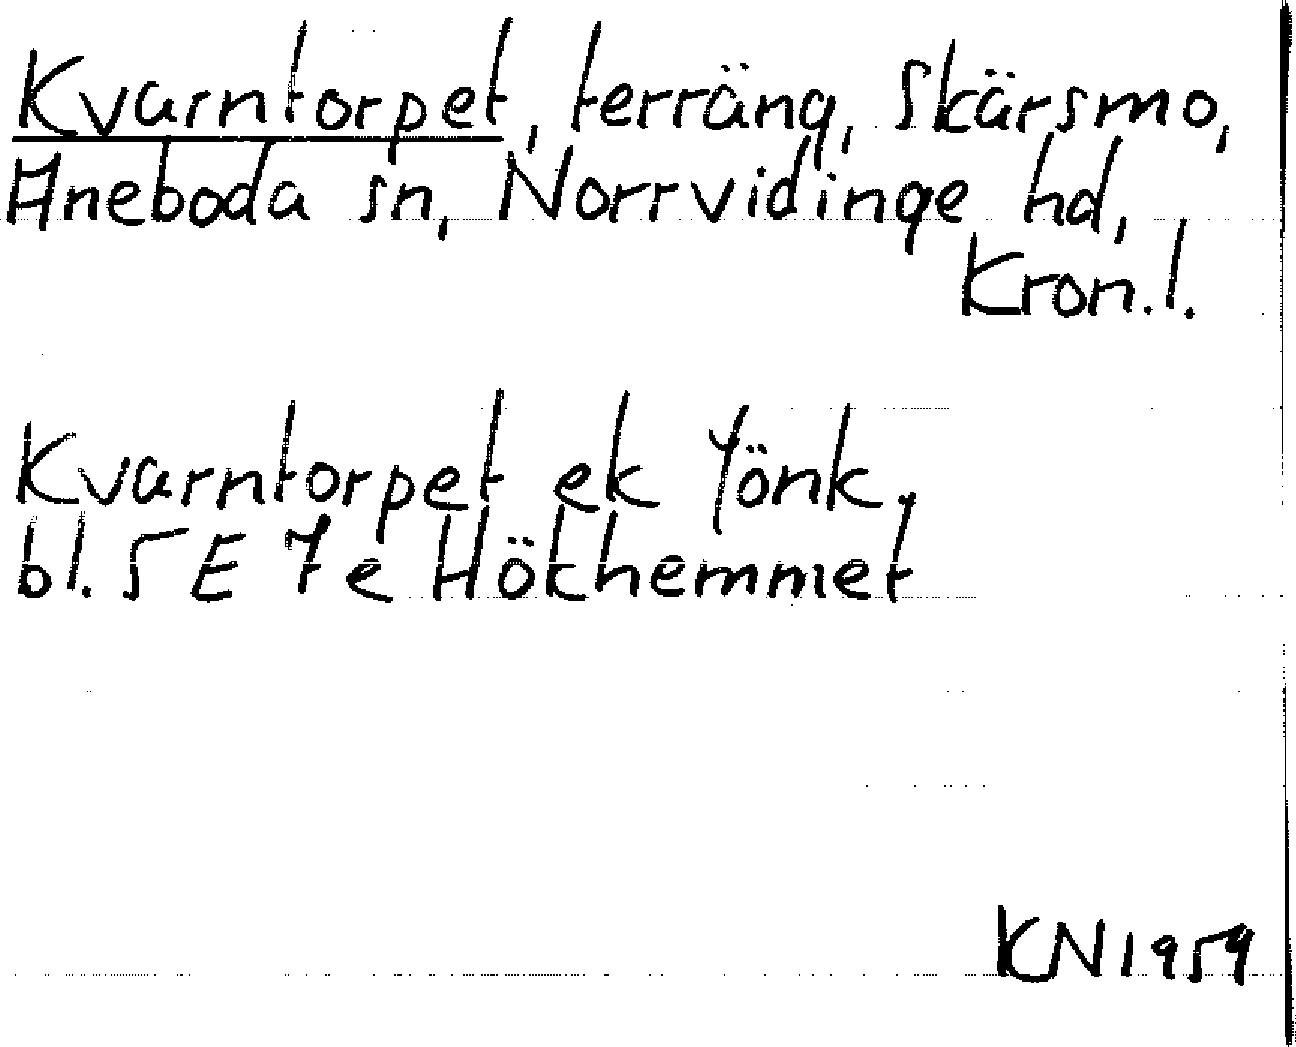 Kvarntorpet, terräng, Skärsmo,
Aneboda sn, Norrvidinge hd,
Kron.l.
Kvarntorpet ek Jönk.
bl. 5 E 7 e Hökhemmet
KN 1959